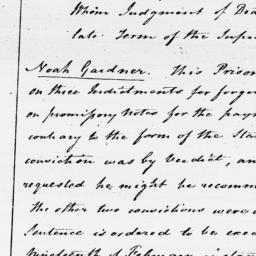 Whom Judgment of Dea
late Term of the Supe
Noah Gardner. This Prison
on three Indictments for forge
on promissory Notes for the pay
contrary to the form of the Sta
conviction was by Verdict, an
requested he might be recomm
the other two convictions were
Sentence is ordered to be exec